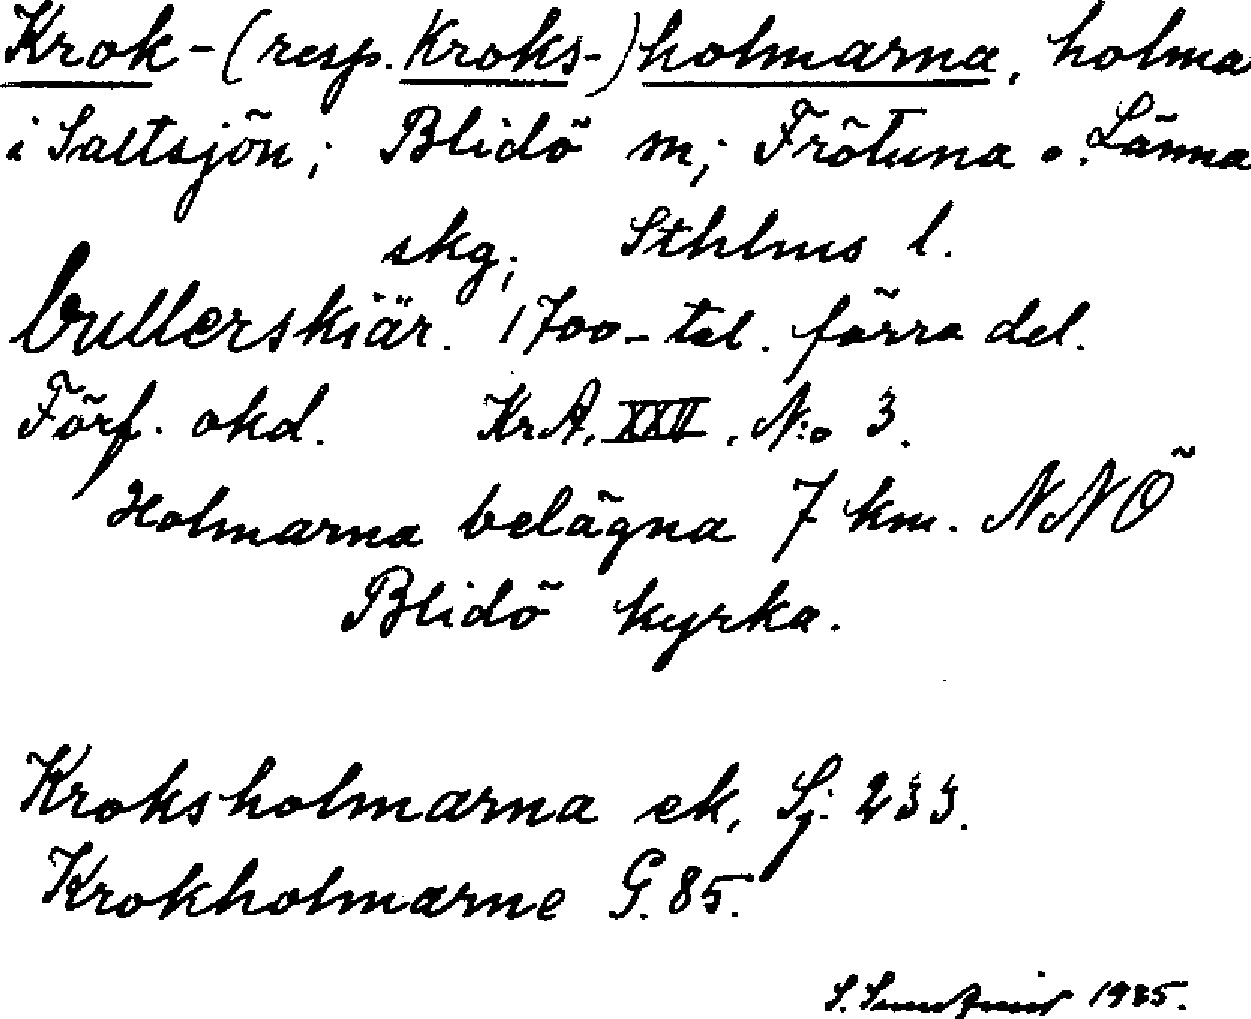 Krok-(resp. Kroks-)holmarna, holma
i Saltsjön; Blidö sn; Frötuna o. Länna
skg; Sthlms l.
bullerskiär. 1700-tal. förra del.
Förf. okd. KrA, XXII, N:o 3.
Holmarna belägna 7 km. NNÖ
Blidö kyrka.
Kroksholmarna ek, Sj: 233.
Krokholmarne G. 85.
S. 1935.